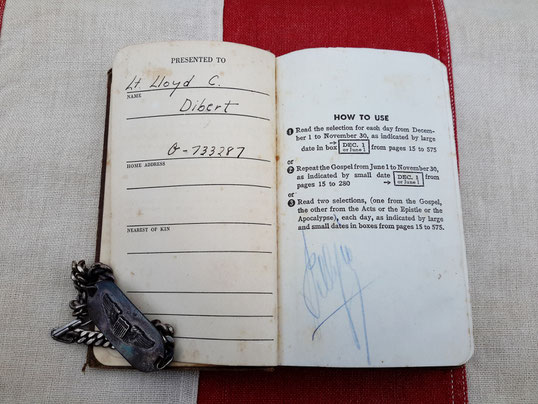 PRESENTED TO
Lt Lloyd C.
NAME
Dibert
O-733287
HOME ADDRESS
NEAREST OF KIN
HOW TO USE
❶ Read the selection for each day from Decem-
ber 1 to November 30, as indicated by large
date in box → DEC. 1 or June 1 from pages 15 to 575
or
❷ Repeat the Gospel from June 1 to November 30,
as indicated by small date → DEC. 1 or June 1 from
pages 15 to 280
or
❸ Read two selections, (one from the Gospel,
the other from the Acts or the Epistle or the
Apocalypse), each day, as indicated by large
and small dates in boxes from pages 15 to 575.